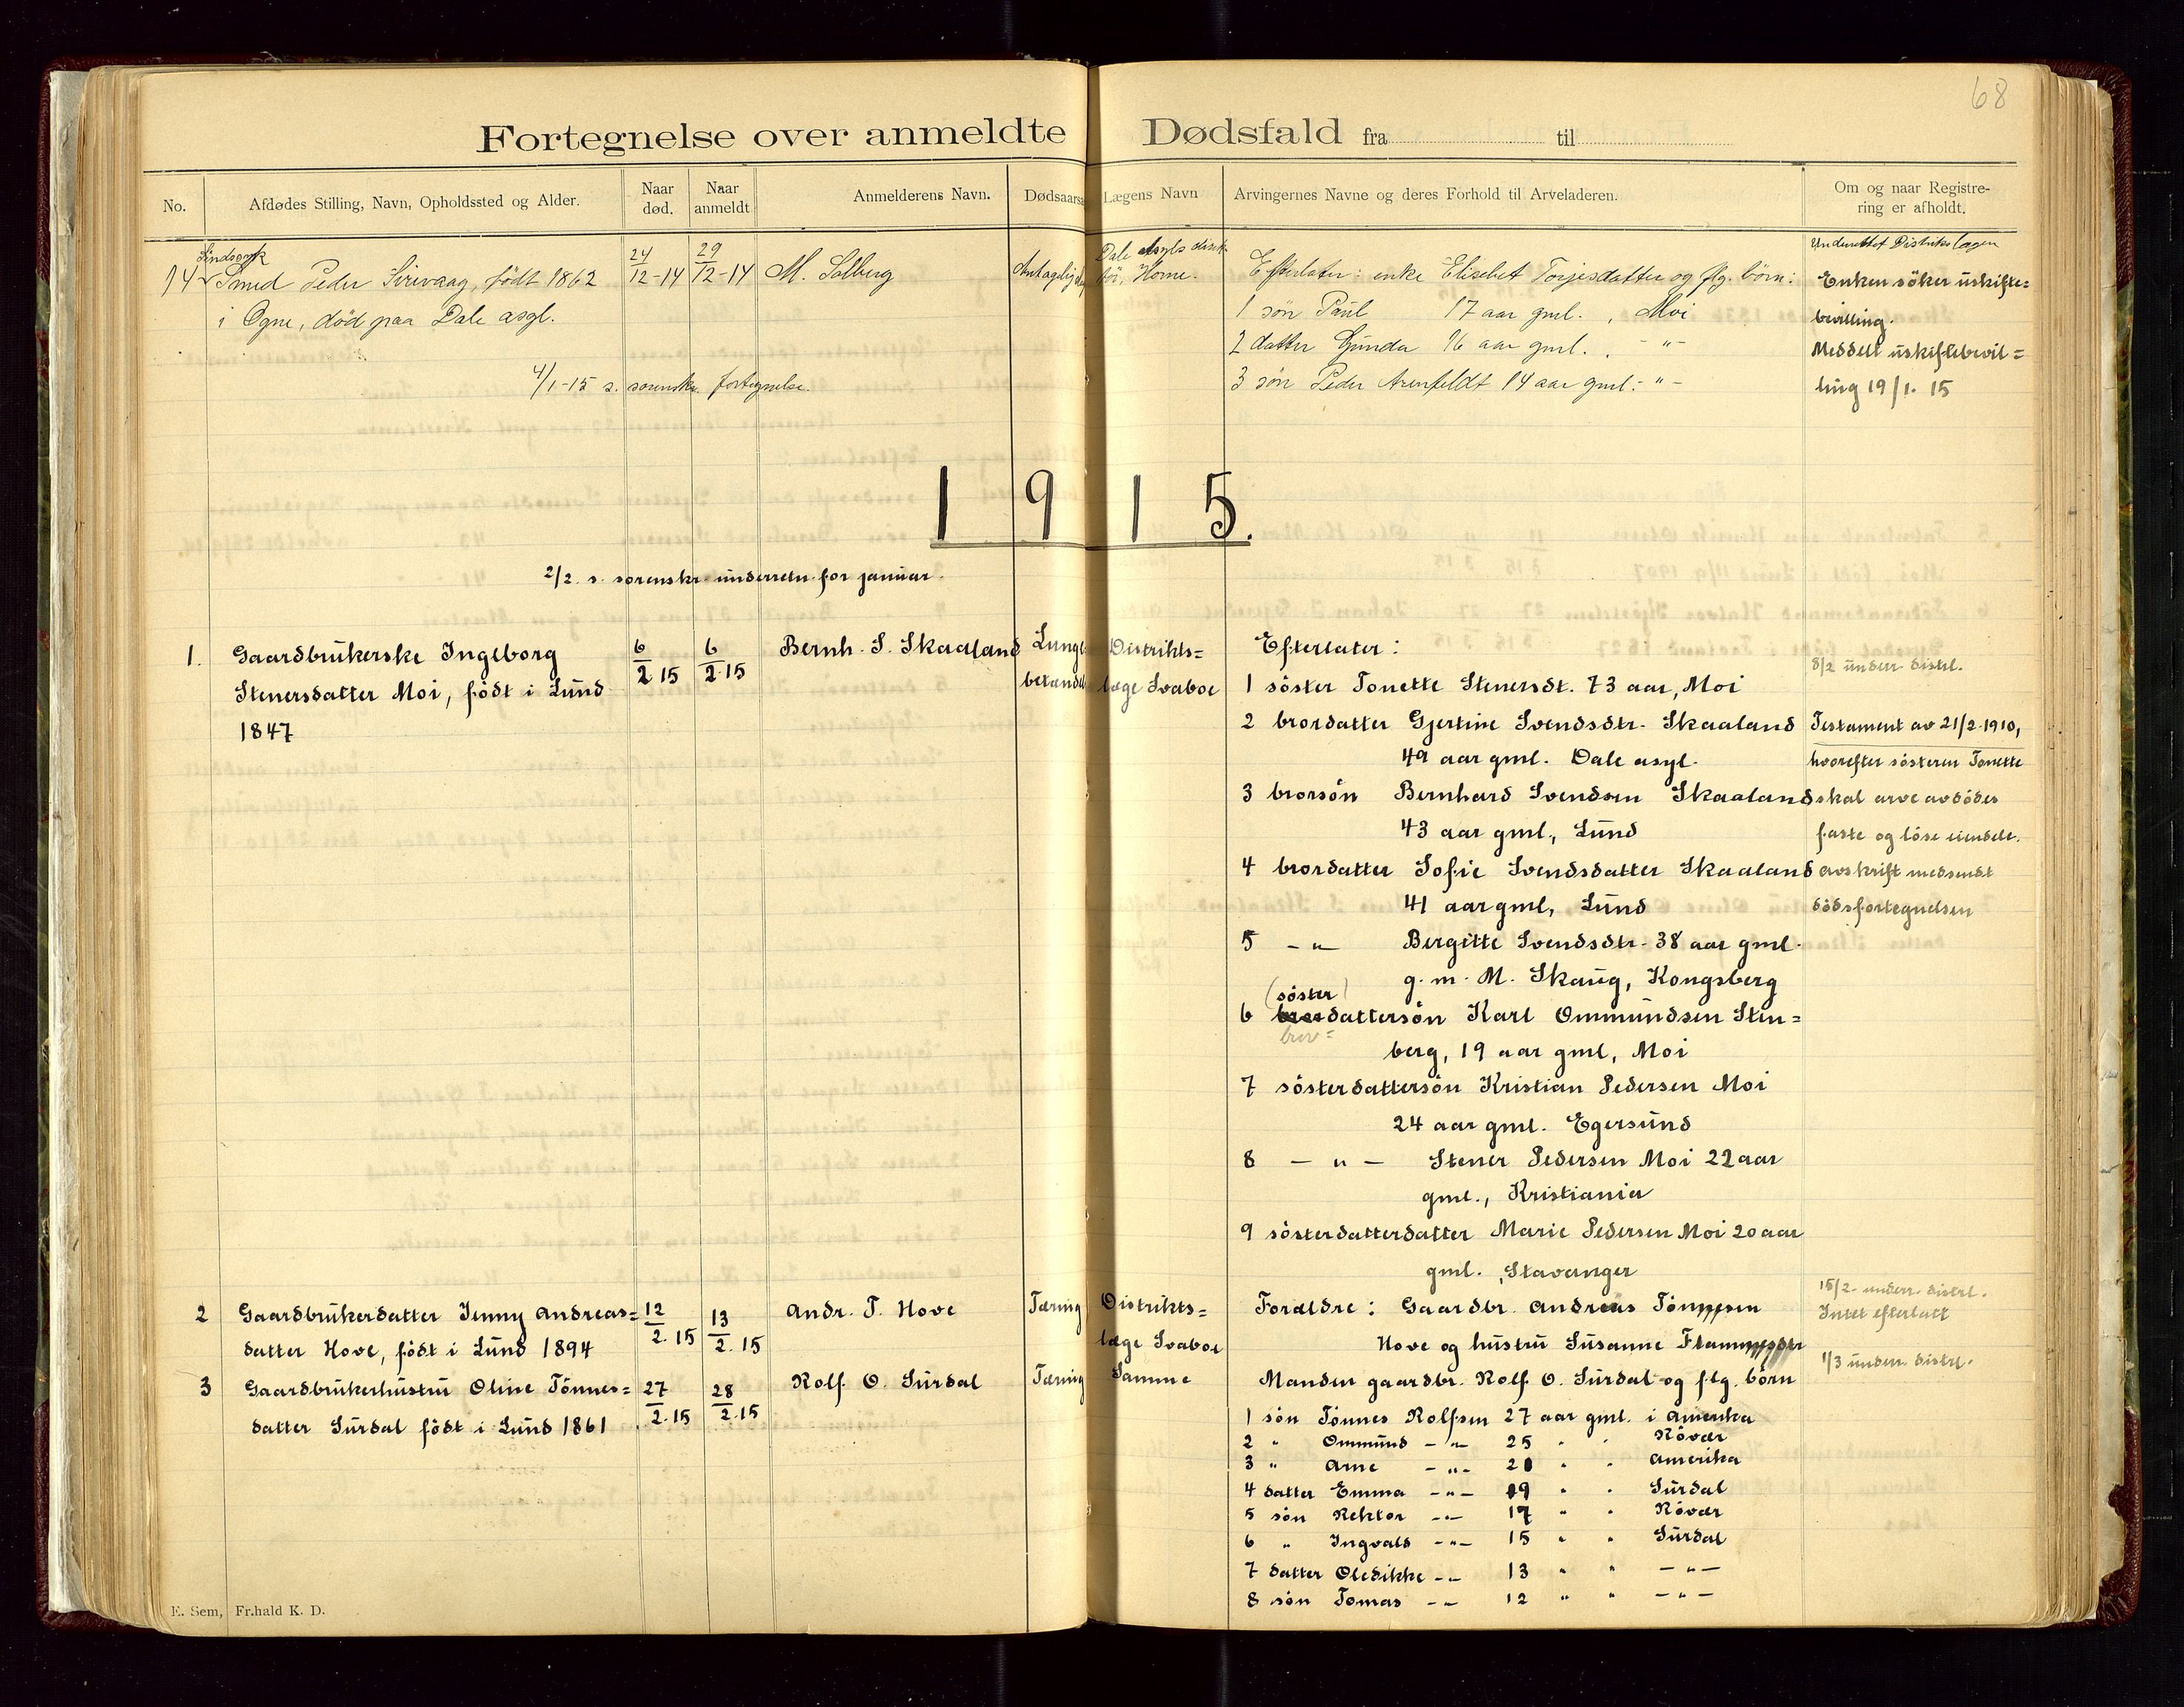 68
Fortegnelse over anmeldte Dødsfald fra til
No. Afdødes Stilling, Navn, Opholdssted og Alder. Naar død. Naar anmeldt Anmelderens Navn. Dødsaarsa Lægens Navn Arvingernes Navne og deres Forhold til Arveladeren. Om og naar Registrering er afholdt.
Sindssyk
14 Smed Peder Sirevaag, født 1862 24/12-14 29/12-14 M. Solberg Antagelig Dale asyls direktør, Horne. Efterlater: enke Elisebet Torjesdatter og flg. børn:
i Ogne, død paa Dale asyl.
1 søn Paul 17 aar gml. , Moi
2 datter Gunda 16 aar gml. , - " -
4/1-15 s. sorenskr. fortegnelse.
3 søn Peder Arenfeldt 14 aar gml. - " -
Underettet Distrikslægen
Enken söker uskifte=
bevilling.
Meddelt uskiftebevil=
ling 19/1. 15
1915.
2/2. s. sorenskr. underretn. for januar.
1. Gaardbrukerske Ingeborg 6/2 15 6/2 15 Bernh. S. Skaaland Lunge Distrikts=
Stenersdatter Moi, födt i Lund betændel læge Svaboe
1847
Efterlater:
1 söster Tonette Stenersdt. 73 aar, Moi
2 brordatter Gjertine Svendsdtr. Skaaland
49 aar gml. Dale asyl.
3 brorsön Bernhard Svendsen Skaaland
43 aar gml., Lund
4 brordatter Sofie Svendsdatter Skaaland
41 aar gml, Lund
5 - " Bergitte Svendsdtr. 38 aar gml.
g. m. M. Skaug, Kongsberg
(söster)
6 bror dattersön Karl Ommundsen Sten=
bror=
berg, 19 aar gml, Moi
7 sösterdattersön Kristian Pedersen Moi
24 aar gml. Egersund
8 - " - Stener Pedersen Moi 22 aar
gml., Kristiania
9 sösterdatterdatter Marie Pedersen Moi 20 aar
gml. , Stavanger
8/2 underr. distrl.
Testament av 21/2.1910,
hvorefter sösteren Tonette
skal arve avdödes
faste og löse eiendele.
avskrift medsendt
dödsfortegnelsen
2 Gaardbrukerdatter Jenny Andreas= 12/2. 15 13/2. 15 Andr. T. Hove Tæring Distrikts=
datter Hove, födt i Lund 1894 læge Svaboe
Forældre: Gaardbr. Andreas Tönnesen
Hove og hustru Susanne
15/2. underr. distrl.
Intet efterlatt
3 Gaardbrukerhustru Oline Tönnes= 27/2.15 28/2.15 Rolf O. Surdal Tæring Samme
datter Surdal födt i Lund 1861
Manden gaardbr. Rolf O. Surdal og flg. börn
1/3 underr. distrl.
1 sön Tönnes Rolfsen 27 aar gml. i Amerika
2 " Ommund - " - 25 " " Rövær
3 " Arne - " - 21 " " Amerika
4 datter Emma - " - 19 " " Surdal
5 sön Rektor - " - 17 " " Rövær
6 " Ingvald - " - 15 " " Surdal
7 datter Oledikke - " - 13 " " - " -
8 sön Tomas - " - 12 " " - " -
E. Sem, Fr.hald K. D.